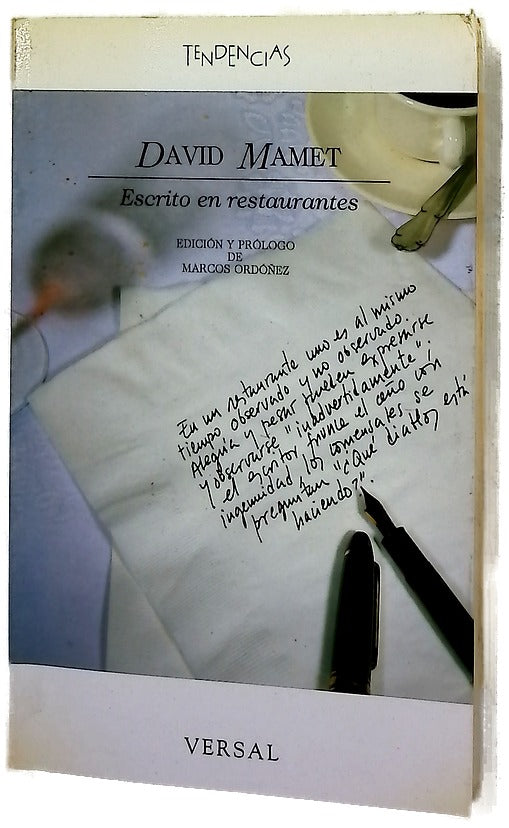 TENDENCIAS
DAVID MAMET
Escrito en restaurantes
EDICIÓN Y PRÓLOGO
DE
MARCOS ORDÓÑEZ
En un restaurante uno es al mismo
tiempo observado y no observado.
Alegría y pesar pueden expresarse
y observarse "inadvertidamente".
el escritor frunce el ceño con
ingenuidad, los comensales se
preguntan "¿Qué diablos está
haciendo?".
VERSAL